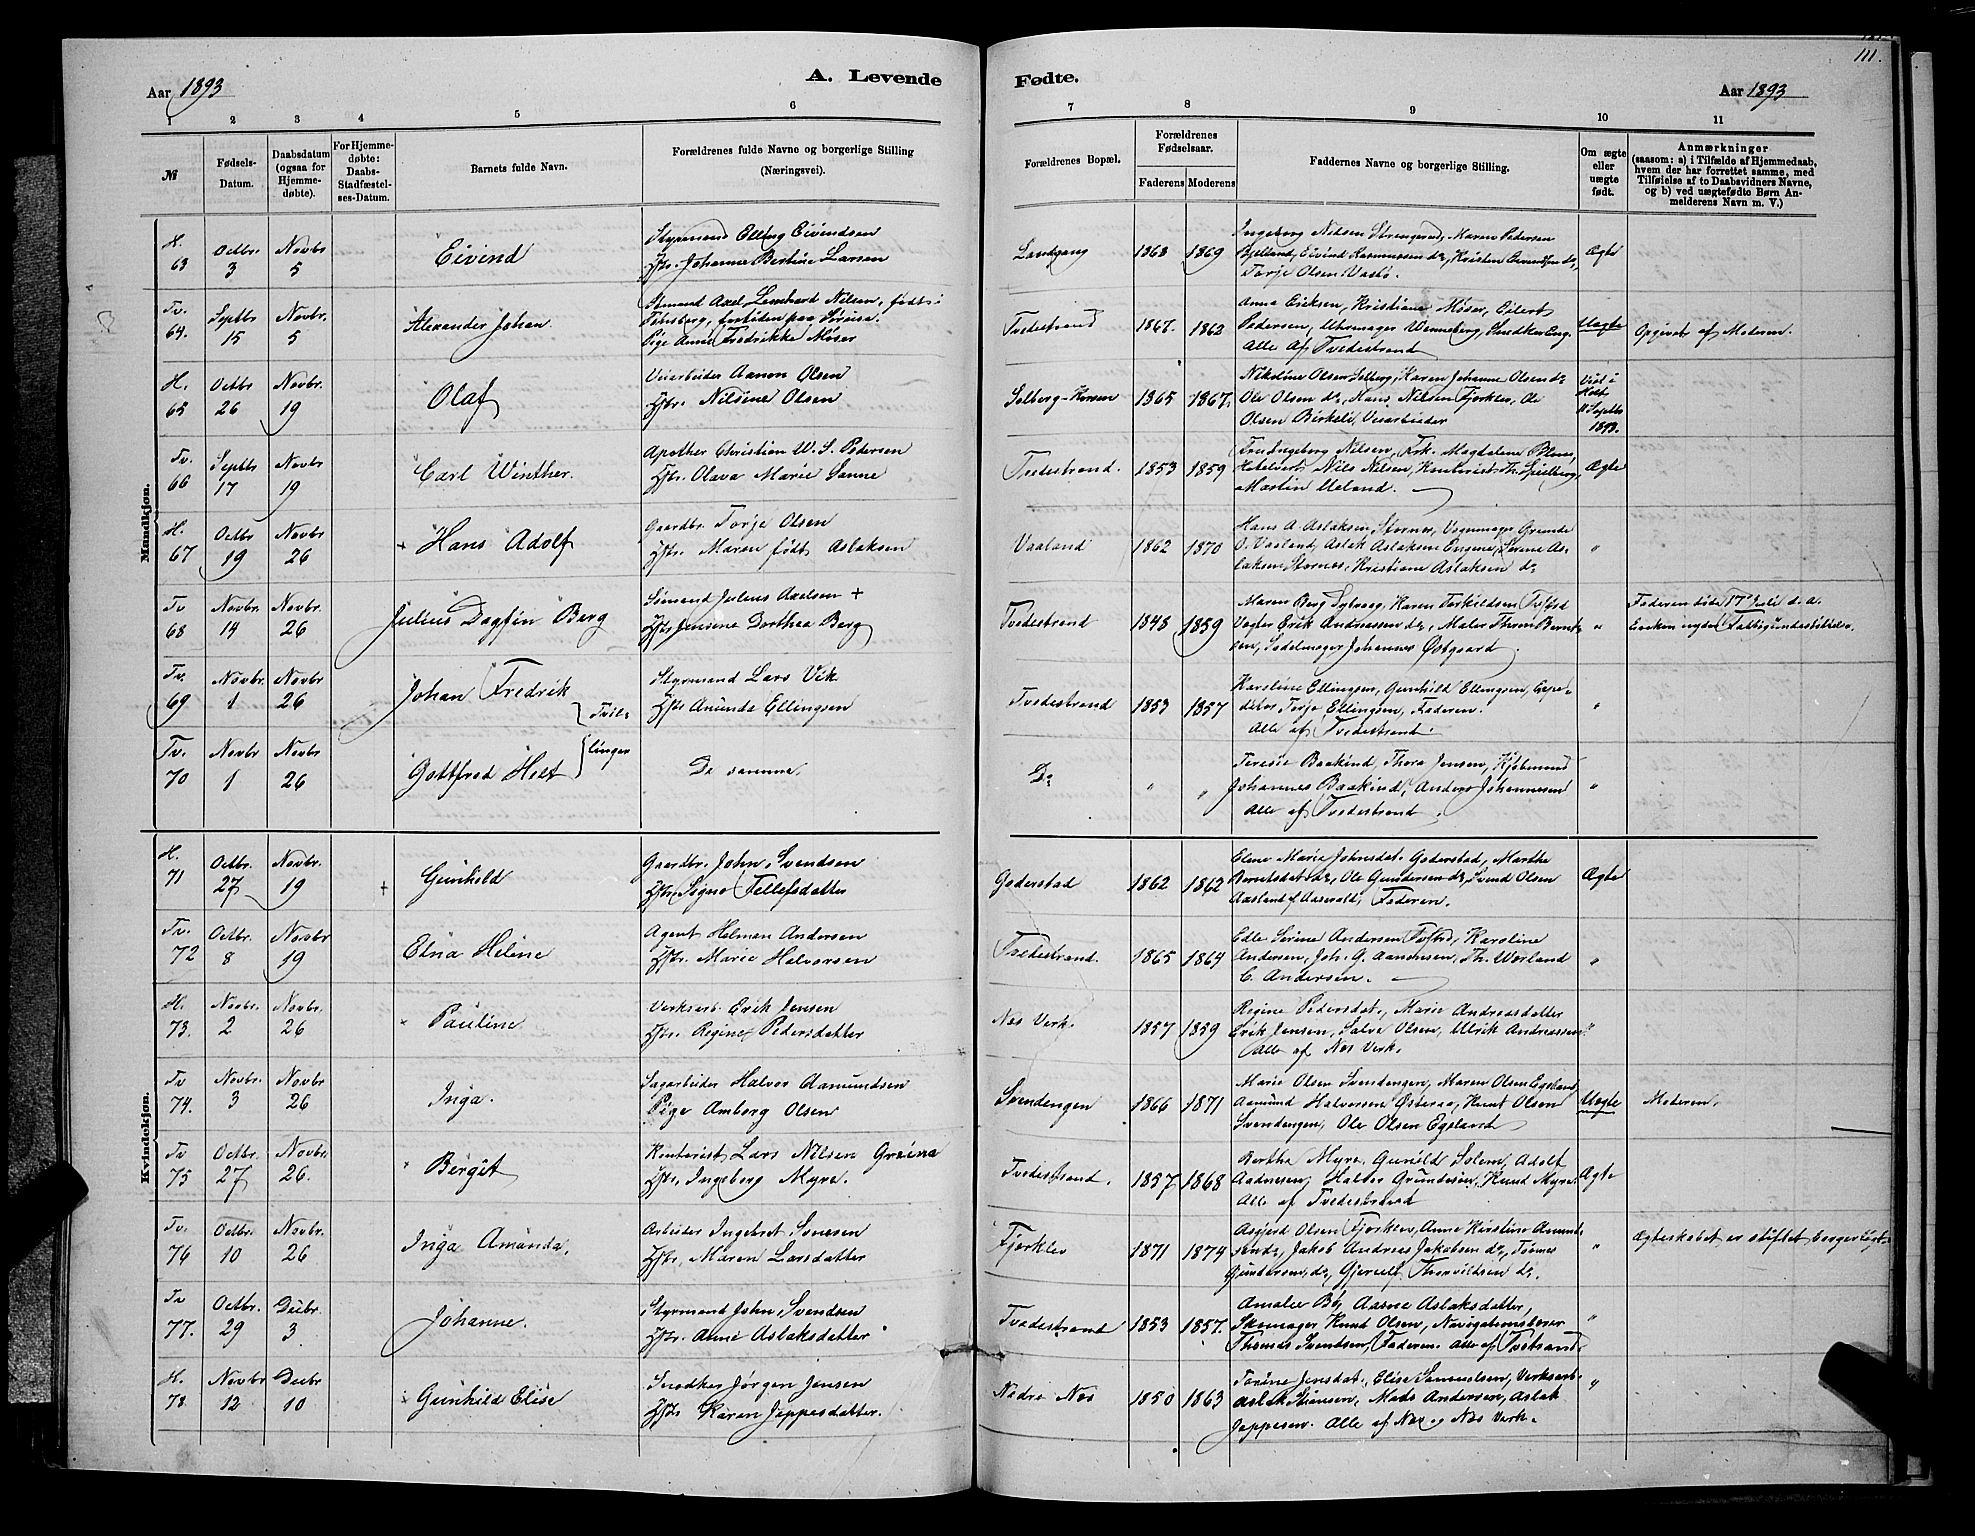 111.
Aar 1893
A. Levende
Fødte.
Aar 1893
1 2 3 4 5 6 7 8 9 10 11
№
Fødsels-
Datum.
Daabsdatum
(ogsaa for
Hjemme-
døbte).
For Hjemme-
døbte:
Daabs-
Stadfæstel-
ses-Datum.
Barnets fulde Navn.
Forældrenes fulde Navne og borgerlige Stilling
(Næringsvei).
Forældrenes Bopæl.
Forældrenes
Fødselsaar.
Faderens Moderens
Faddernes Navne og borgerlige Stilling.
Om ægte
eller
uægte
født.
Anmærkninger
(saasom: a) i Tilfælde af Hjemmedaab,
hvem der har forrettet samme, med
Tilføielse af to Daabsvidners Navne,
og b) ved uægtefødte Børn An-
melderens Navn m. V.)
Mandkjøn.
H. 63
Octbr. 3
Novbr. 5
Eivind
Styrmand Elling Eivindsen
Hstr. Johanne Bertine Larsen
1868 1869
Ingeborg Nilsen Strengereid, Maren Pedersen
Bjelland, Eivind Rasmussen do, Kristen Eivindsen do,
Torje Olsen Vasbø.
Ægte
Tv. 64.
Septbr 15
Novbr. 5
Alexander Johan.
Sømand Axel Lenhard Nilsen, født i
Tønsberg, fortiden paa Sørreisa.
Pige Anne Fredrikke Møser
Tvedestrand
1867. 1862
Anna Eriksen, Kristiane Møser, Eilert
Pedersen, Uhrmager Wenneberg, Snedker Eng.
Alle af Tvedestrand
Uægte
Opgivet af Moderen.
H. 65
Octbr 26
Novbr. 19
Olaf
Veiarbeider Aanon Olsen
Hstr. Nilsine Olsen
1865 1867.
Nikoline Olsen Selberg, Karen Johanne Olsen do
Ole Olsen do, Hans Nilsen Fjorklev, Ole
Olsen Birkeli, Veiarbeider
Viet i
Holt
11 Septbr
1893.
Tv. 66
Septbr 17
Novbr 19
Carl Winther.
Apother Christian W. S. Pedersen
Hstr. Olava Marie Sanne
Tvedestrand.
1853 1859
Fru Ingeborg Nilsen, Frk. Magdalene Blom,
Hotelvert Nils Nilsen, Kontorist Th. Spielberg,
Martin Ueland.
Ægte
H. 67
Octbr 19
Novbr 26
+ Hans Adolf
Gaardbr. Torje Olsen
Hstr. Maren født Aslaksen
Vaaland
1862 1870
Hans A. Aslaksen, Stornes, Vognmager Grunde
O. Vaaland, Aslak Aslaksen Engene, Serine As-
laksen Stornes, Kristiane Aslaksen do
"
Tv 68
Novbr. 14
Novbr. 26
Julius Dagfin Berg
Sømand Julius Axelsen +
Hstr Jensine Dorthea Berg
Tvedestrand
1848 1859
Maren Berg Syberg, Karen Torkildsen Tvestrd
Vægter Erik Andreassen do, Maler Thom Bernt-
sen, Sadelmager Johannes Østgaard.
"
Faderen døde 17 Juli d. a.
Enken nyder Fattigunderstøttelse.
Tv. 69
Novbr. 1
Novbr 26
Johan Fredrik
} Tvil=
Styrmand Lars Vik
Hstr Amunda Ellingsen
Tvedestrand
1853 1857
Karoline Ellingsen, Gunhild Ellingsen, Expe-
ditør Torje Ellingsen, Faderen.
Alle af Tvedestrand.
"
Tv. 70
Novbr 1
Novbr 26
Gottfred Helt
} linger
De samme.
Do
" "
Teresie Baakind, Thora Jensen, Kjøbmand
Johannes Baakind, Anders Johannesen
Alle af Tvedestrand.
"
Kvindekjøn.
H. 71
Octbr. 27
Novbr. 19
+ Gunhild
Gaardbr. John Svendsen
Hstr. Signe Tellefsdatter
Goderstad
1862 1862
Elene Marie Johnsdat. Goderstad, Marthe
Berntsdat do, Ole Gundersen do, Svend Olsen
Aasland, Faderen.
Ægte
Tv. 72
Octbr. 8
Novbr 19
Elna Helene
Agent Helman Andersen
Hstr. Marie Halvorsen
Tvedestrand.
1865 1864
Edle Serine Andersen Tvstrd, Karoline
Andersen, Joh. G. Aanonsen, Th. Worland
C. Andersen.
"
H. 73.
Novbr. 2
Novbr. 26
× Pauline
Verksarb. Erik Jensen
Hstr. Regine Pedersdatter
Nes Verk.
1857 1859
Regine Pedersdat., Marie Andreasdatter
Erik Jensen, Salve Olsen, Ulrik Andreassen
Alle af Nes Verk.
"
Tv 74.
Novbr. 3
Novbr 26
Inga.
Sagarbeider Halvor Aamundsen
Pige Amborg Olsen
Svendengen
1866 1871
Marie Olsen Svendengen, Maren Olsen Egeland
Aamund Halvorsen Østeraa, Knut Olsen
Svendengen, Ole Olsen Egeland
Uægte
Moderen.
Tv 75
Octbr. 27
Novbr. 26.
Bergit
Kontorist Lars Nilsen
Hstr. Ingeborg Myre.
Tvedestrand.
1857 1868
Berthe Myre, Gunild Solem, Adolf
Aadnesen, Halvor Grundesen, Knud Myre.
Alle af Tvedestrand
Ægte
Tv. 76
Octbr. 10
Novbr. 26
Inga Amanda.
Arbeider Ingebret Svensen
Hstr. Maren Larsdatter
Fjorklev
1871 1874
Asgjerd Olsen Fjorklev, Anne Kirstine Amund-
sen do, Jakob Andreas Jakobsen do, Tønnes
Gundersen do, Gjerulf Thorvildsen do.
"
Ægteskabet er stiftet borgerligt.
Tv 77.
Octbr. 29
Decbr. 3
Johanne.
Styrmand John Svendsen
Hstr. Anne Aslaksdatter
Tvedestrand
1853 1857.
Amalie Bø, Aasne Aslaksdatter,
Skomager Knut Olsen, Navigationslærer
Thomas Svendsen, Faderen. Alle af Tvstrand.
"
H. 78
Novbr 12
Decbr 10
Gunhild Elise
Snedker Jørgen Jensen
Hstr Karen Jeppesdatter.
Nedre Nes
1850 1863
Torine Jensdat., Elise Samuelsen, Verksarb.
Aslak Stiansen, Mads Andersen, Aslak
Jeppesen. Alle af Nes og Nes Verk.
"